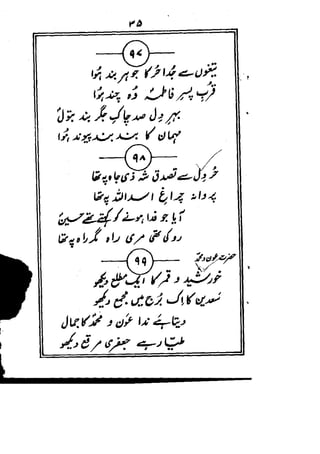 ۳۵
۹۷
تیغوں سے جُدا حُر کا جو ہر بند ہُوا
قربِ پسرِ فاطمہؑ دہ چند ہُوا
بہرِ دلِ صد چاکِ جگر بندِ بتولؑ
مہمان کا بند بند پیوند ہُوا
۹۸
حُر دل سے تصدق شہِ ذی جاہ پہ تھا
پروانہ چراغِ اسد اللہ پہ تھا
آیا جو فدا ہونے کو کہتے تھے حسینؑ
روکی تھی مری راہ مگر راہ پہ تھا
حضرت عون و محمد
۹۹
خورشید و قمر کا ایک مطلع دیکھو
سعدین کا اک بُرج میں مجمع دیکھو
دیتا ہے ندا عونؑ و محمدؑ کا جمال
طیار ہے جعفری مرقع دیکھو